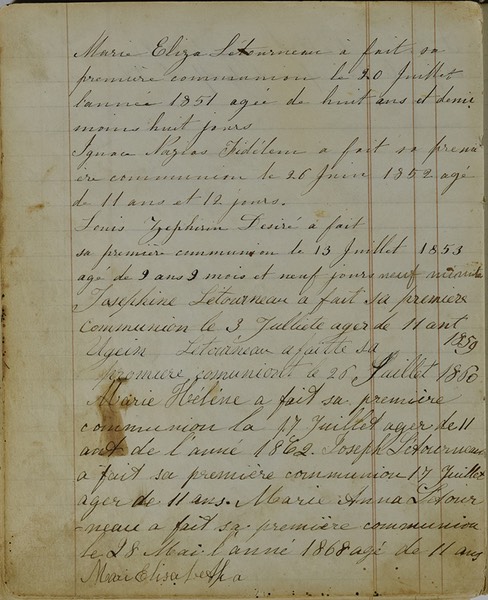 Marie Eliza Létourneau à fait sa
première communion le 20 Juillet
lannée 1851 agée de huit ans et demi
moins huit jours
Ignace Nazias Fidélem a fait sa premi
ère communion le 26 Juin 1852 agé
de 11 ans et 12 jours.
Louis Zephirin Desiré a fait
sa première communion le 13 Juillet 1853
agé de 9 ans 9 mois et neuf jours neuf minute
Josephine Letourneau a fait sa première
communion le 3 Julliete ager de 11 ant
1859
Létourneau a faitte sa
promiere comuniont le 26 Juillet 1860
Marie Hélène a fait sa première
communion la 17 Juillet ager de 11
ant de l'anné 1862. Joseph Létourneau
a fait sa première communion 17 Juillet
ager de 11 ans. Marie Anna Létour
-neau a fait sa première communion
le 28 Mai l'anné 1868 agé de 11 ans
Marie Elisabeth a